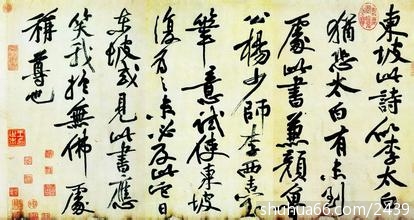 東坡此詩似李太白
猶恐太白有未到
處此書兼顏魯
公楊少師李西臺
筆意試使東坡
復為之未必及此它日
東坡或見此書應
笑我於無佛處
稱尊也
shuhua66.com/2439